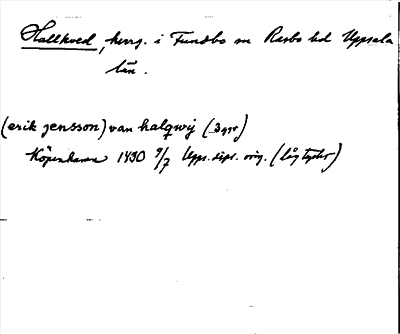 Hallkved, herrg. i Funbo sn Rasbo hd Uppsala
län.
(erik jensson) van halqwij (3 ggr)
Köpenhamn 1490 9/7 Upps. dipl. orig. (lågtyska)